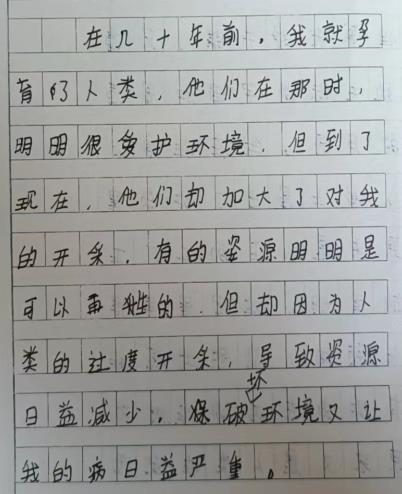 在几十年前，我就孕
育了人类，他们在那时，
明明很爱护环境，但到了
现在，他们却加大了对我
的开采，有的姿源明明是
可以再牲的，但却因为人
类的过度开采，导致资源
日益减少，保破坏环境又让
我的病日益严重。